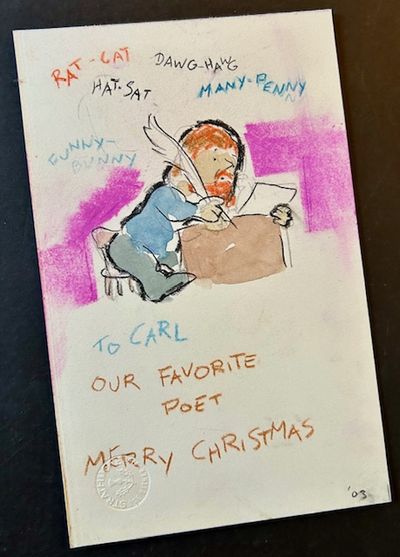 RAT-CAT
DAWG-HAWG
HAT-SAT
MANY-PENNY
FUNNY-
BUNNY
TO CARL
OUR FAVORITE
POET
MERRY CHRISTMAS
'03